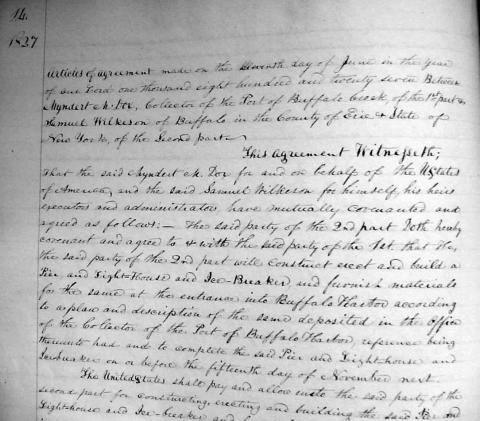 14.
1827
Articles of agreement made on the seventh day of June in the Year
of our Lord one thousand eight hundred and twenty seven Between
Myndert M. Dox, Collector of the Port of Buffalo Creek, of the 1st part &
Samuel Wilkeson of Buffalo in the County of Erie & State of
New York, of the Second part—
This Agreement Witnesseth;
That the said Myndert M. Dox for and on behalf of the U States
of America, and the said Samuel Wilkeson for himself, his heirs
executors and administrators have mutually covenanted and
agreed as follows:— The said party of the 2nd part Doth hereby
covenant and agree to & with the said party of the 1st that he,
the said party of the 2nd part will construct erect and build a
Pier and Light-House and Ice-Breaker, and furnish materials
for the same at the entrance into Buffalo Harbor according
to a plan and description of the same deposited in the Office
of the Collector of the Port of Buffalo Harbor, reference being
thereunto had and to complete the said Pier and Light-house and
Icebreaker on or before the fifteenth day of November next.
The United States shall pay and allow unto the said party of the
second part for constructing, erecting and building the said Pier and
Light-house and Ice-breaker and